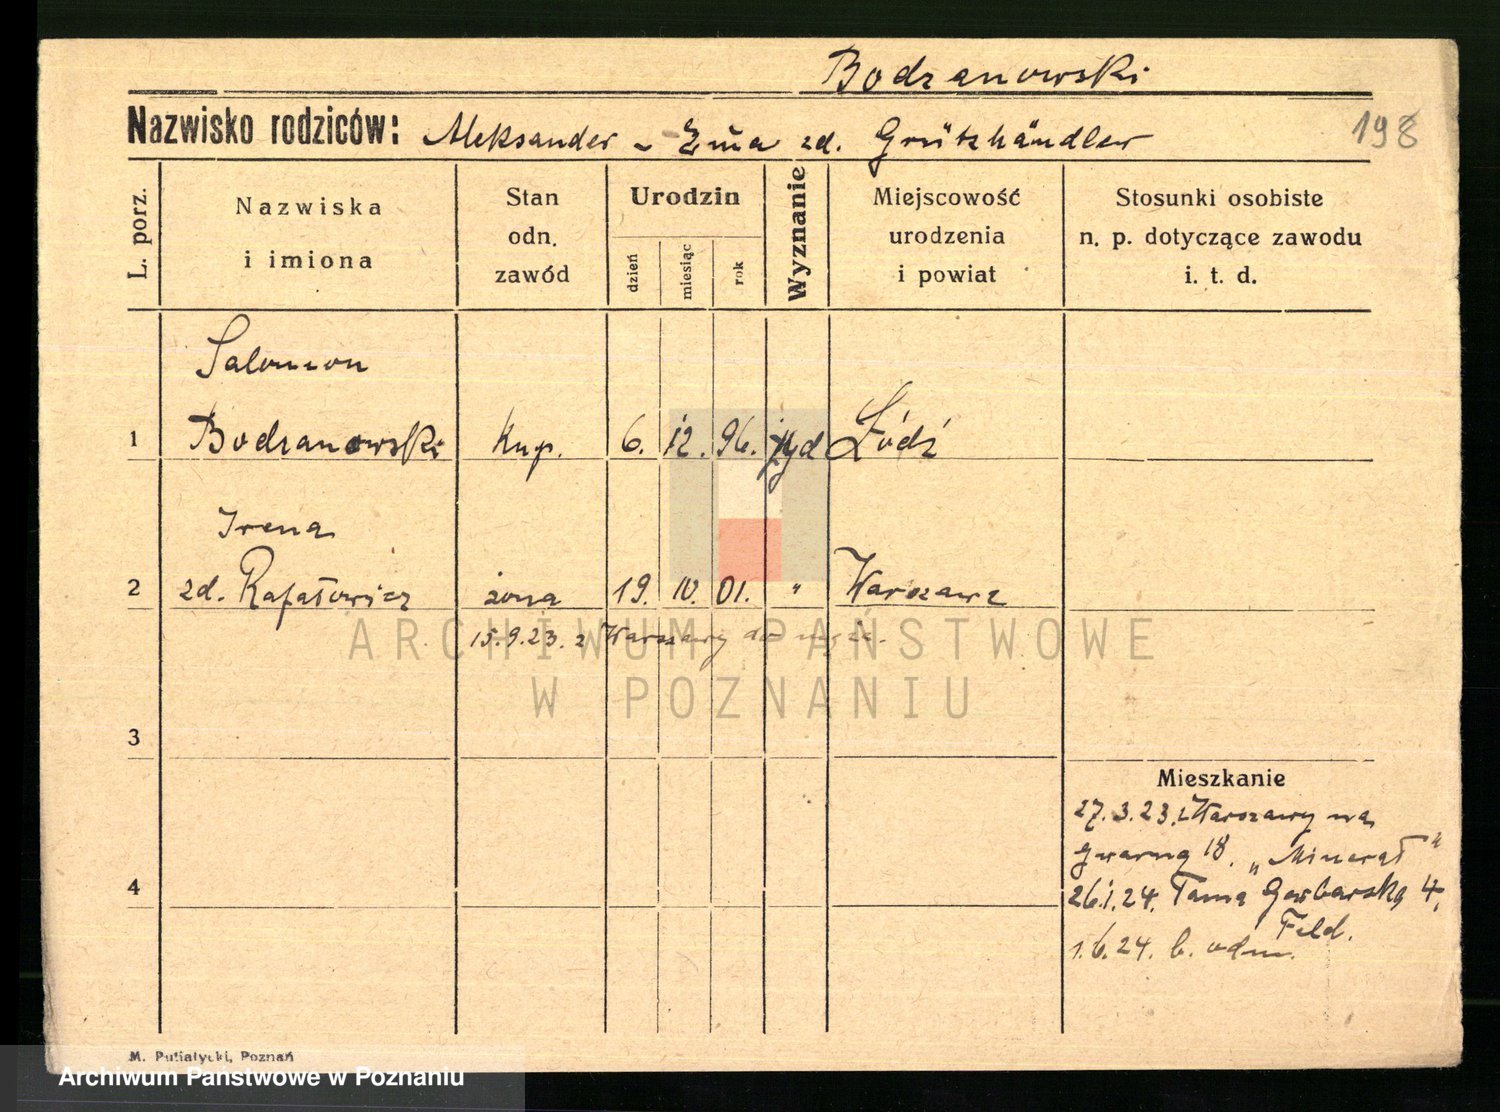 Bodzanowski
Nazwisko rodziców: Aleksander - Ema zd. Grützhändler
198
L. porz.
Nazwiska
i imiona
Stan
odn.
zawód
Urodzin
dzień
miesiąc
rok
Wyznanie
Miejscowość
urodzenia
i powiat
Stosunki osobiste
n. p. dotyczące zawodu
i. t. d.
Salomon
1 Bodzanowski kup. 6. 12. 96. żyd Łódź
Irena
2 zd. Rafałowicz żona 19. 10. 01. " Warszawa
15.9.23. z Warszawy do męża.
3
Mieszkanie
27.3.23. z Warszawy na
Gwarną 18. „Minerał"
4
26.1.24. Tama Garbarska 4,
Feld.
1.6.24. b. odm.
ARCHIWUM PAŃSTWOWE
W POZNANIU
M. Putiatycki, Poznań
Archiwum Państwowe w Poznaniu